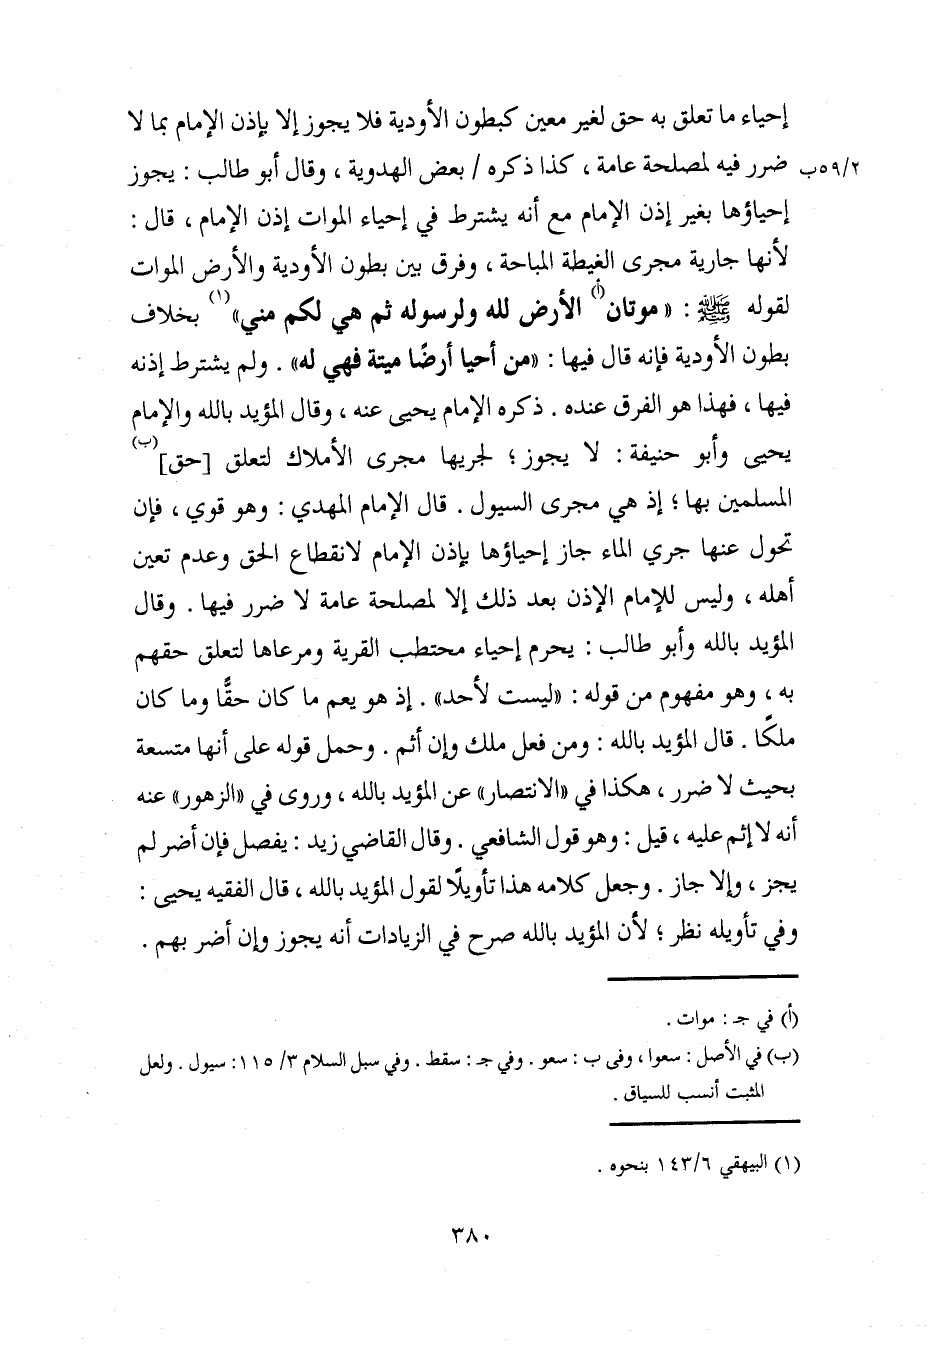 إحياء ما تعلق به حق لغير معين كبطون الأودية فلا يجوز إلا بإذن الإمام بما لا
٥٩/٢ب ضرر فيه لمصلحة عامة ، كذا ذكره / بعض الهدوية ، وقال أبو طالب : يجوز
إحياؤها بغير إذن الإمام مع أنه يشترط في إحياء الموات إذن الإمام ، قال :
لأنها جارية مجرى الغيطة المباحة ، وفرق بين بطون الأودية والأرض الموات
لقوله ﷺ : «موتان(أ) الأرض لله ولرسوله ثم هي لكم مني»(١) بخلاف
بطون الأودية فإنه قال فيها : «من أحيا أرضًا ميتة فهي له» . ولم يشترط إذنه
فيها ، فهذا هو الفرق عنده . ذكره الإمام يحيى عنه ، وقال المؤيد بالله والإمام
يحيى وأبو حنيفة : لا يجوز ؛ لجريها مجرى الأملاك لتعلق [حق](ب)
المسلمين بها ؛ إذ هي مجرى السيول . قال الإمام المهدي : وهو قوي ، فإن
تحول عنها جري الماء جاز إحياؤها بإذن الإمام لانقطاع الحق وعدم تعين
أهله ، وليس للإمام الإذن بعد ذلك إلا لمصلحة عامة لا ضرر فيها . وقال
المؤيد بالله وأبو طالب : يحرم إحياء محتطب القرية ومرعاها لتعلق حقهم
به ، وهو مفهوم من قوله : «ليست لأحد» . إذ هو يعم ما كان حقًّا وما كان
ملكًا . قال المؤيد بالله : ومن فعل ملك وإن أثم . وحمل قوله على أنها متسعة
بحيث لا ضرر ، هكذا في «الانتصار» عن المؤيد بالله ، وروى في «الزهور» عنه
أنه لا إثم عليه ، قيل : وهو قول الشافعي . وقال القاضي زيد : يفصل فإن أضر لم
يجز ، وإلا جاز . وجعل كلامه هذا تأويلًا لقول المؤيد بالله ، قال الفقيه يحيى :
وفي تأويله نظر ؛ لأن المؤيد بالله صرح في الزيادات أنه يجوز وإن أضر بهم .
(أ) في جـ : موات .
(ب) في الأصل : سعوا ، وفى ب : سعو . وفي جـ : سقط . وفي سبل السلام ٣/ ١١٥: سيول . ولعل
المثبت أنسب للسياق .
(١) البيهقي ١٤٣/٦ بنحوه .
٣٨٠